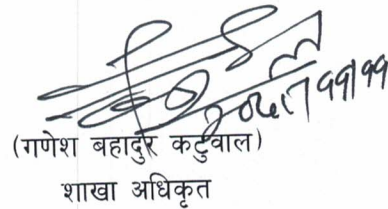 (गणेश बहादुर कटुवाल)
शाखा अधिकृत